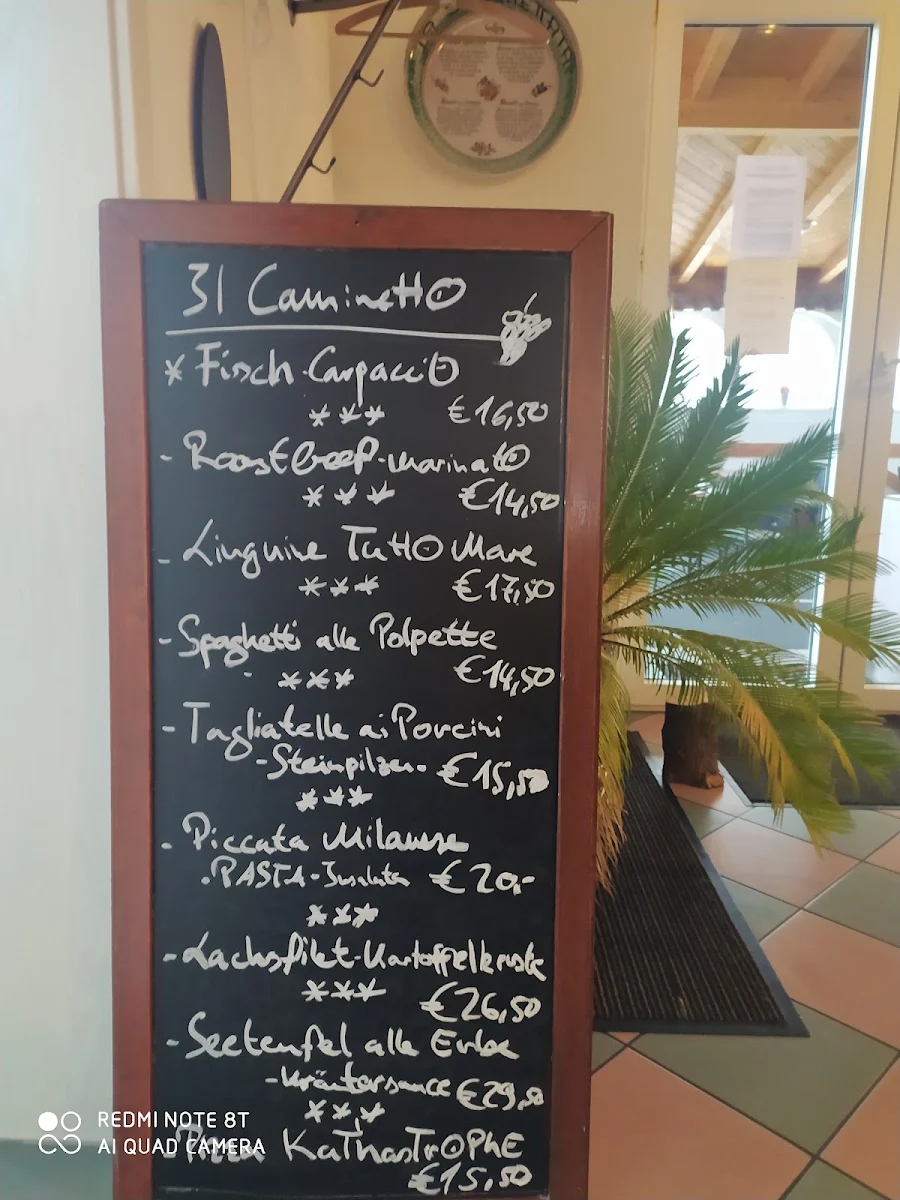 Il Caminetto
* Fisch-Carpaccio
*** €16,50
- Roastbeef-marinato
*** €14,50
- Linguine Tutto Mare
*** €17,50
- Spaghetti alle Polpette
*** €14,50
- Tagliatelle ai Porcini
-Steinpilzen- €15,50
***
- Piccata Milanese
-PASTA-Insalata €20,-
***
- Lachsfilet-Kartoffelkruste
*** €26,50
- Seeteufel alle Erbe
-Kräutersauce €29,50
***
- Pizza KaThasTrOPhE
€15,50
REDMI NOTE 8T
AI QUAD CAMERA